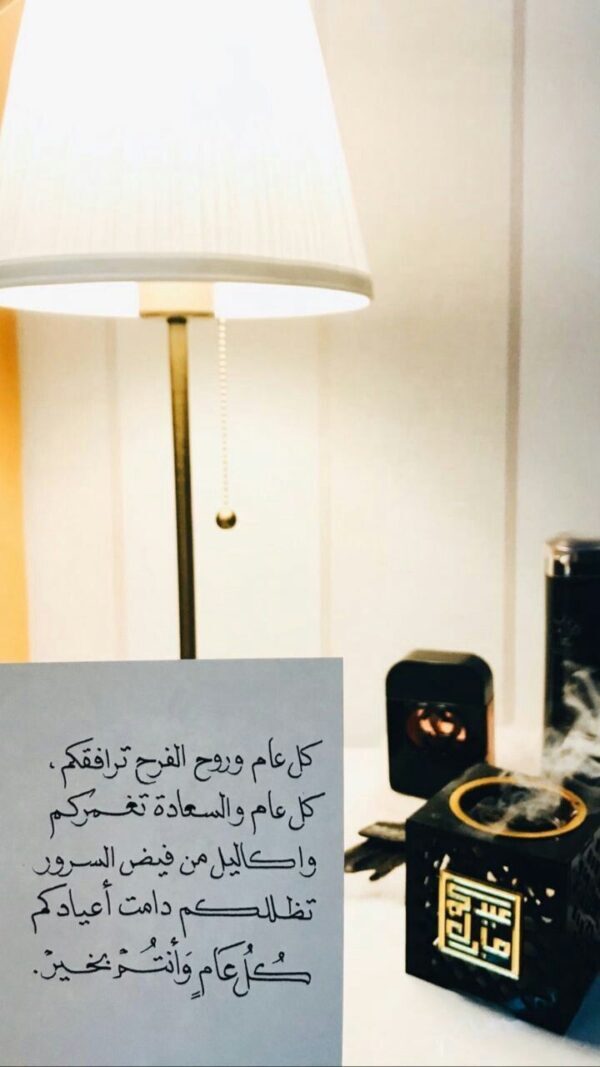 كل عام وروح الفرح ترافقكم ،
كل عام والسعادة تغمركم
واكاليل من فيض السرور
تظللكم دامت أعيادكم
كُلُ عَامٍ وَأَنتُمْ بخَيرْ.
عيدكم مبارك